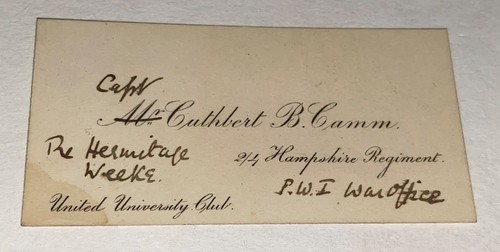 Capt
Mr. Cuthbert B. Camm.
The Hermitage
Weeke.
2/4 Hampshire Regiment.
P.W.I War Office
United University Club.